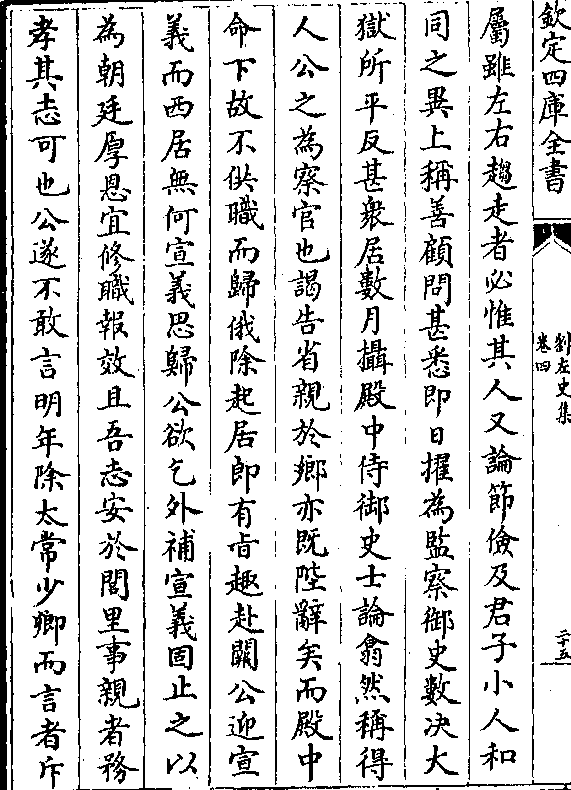 欽定四庫全書
劉左史集
卷四
二十五
屬雖左右趨走者必惟其人又論節儉及君子小人和
同之異上稱善顧問甚悉即日擢為監察御史數決大
獄所平反甚衆居數月攝殿中侍御史士論翕然稱得
人公之為察官也謁告省親於鄉亦既陛辭矣而殿中
命下故不供職而歸俄除起居郎有旨趣赴闕公迎宣
義而西居無何宣義思歸公欲乞外補宣義固止之以
為朝廷厚恩宜修職報效且吾志安於閭里事親者務
孝其志可也公遂不敢言明年除太常少卿而言者斥